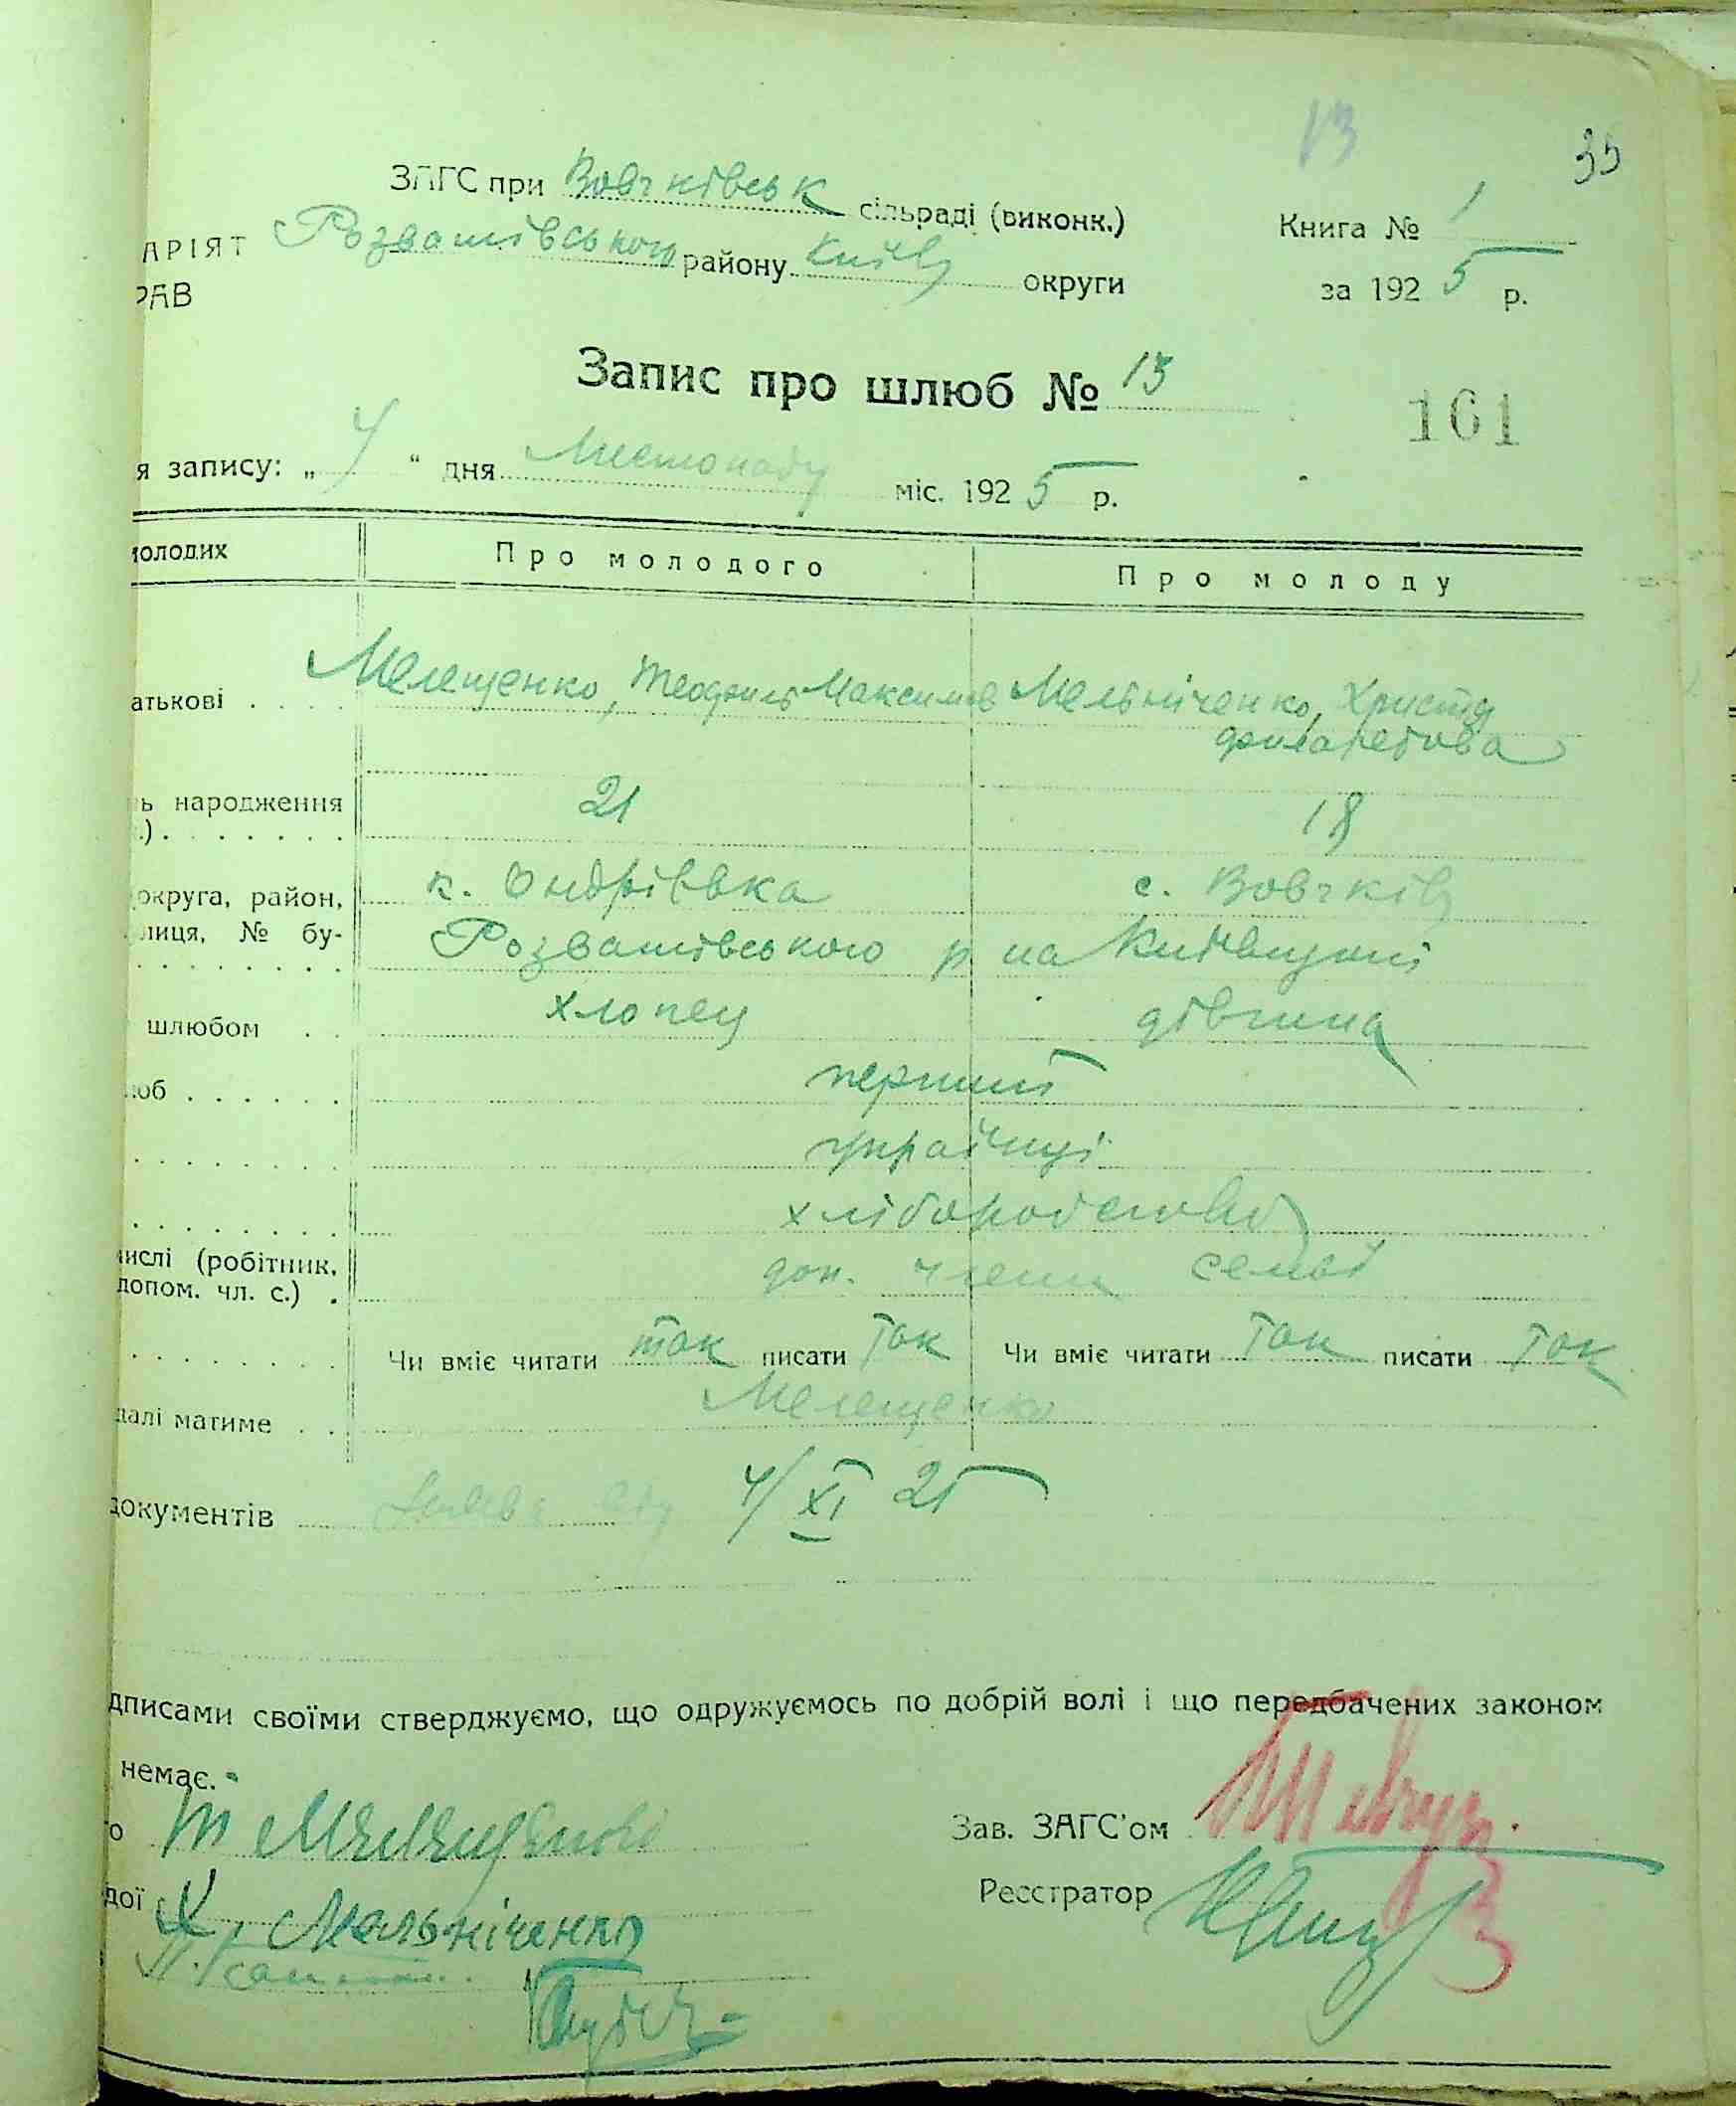 13
35
ЗАГС при Вовчківськ сільраді (виконк.)
Книга № 1
АРІЯТ Розважівського району Київ округи
РАВ
за 1925 р.
Запис про шлюб № 13
161
я запису: „ 4 “ дня Листопаду міс. 1925 р.
молодих Про молодого Про молоду
атькові . . . . Мелещенко, Теодзиль Максимів Мельніченко, Христя
филаретова
ь народження 21 18
.) . . . . . . .
округа, район, к. Ондріївка с. Вовчків
лиця, № бу- Розважівського р на Київщині
шлюбом . . хлопец дівчина
юб . . . . . . перший
українці
хліборобство
числі (робітник, доп. члени семьї
допом. чл. с.) .
Чи вміє читати так писати так Чи вміє читати так писати так
далі матиме . . Мелещенко
документів 4/XI 25
дписами своїми стверджуємо, що одружуємось по добрій волі і що передбачених законом
немає.
го Т Мелещенко
Зав. ЗАГС'ом
дої Х. Мельніченко
Реєстратор